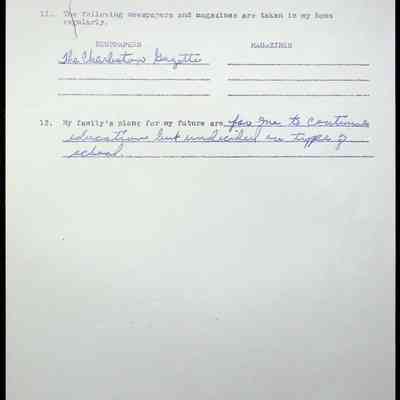 11. The following newspapers and magazines are taken in my home
regularly.
NEWSPAPERS MAGAZINES
The Charleston Gazette
12. My family's plans for my future are for me to continue
education but undecided on type of
school.